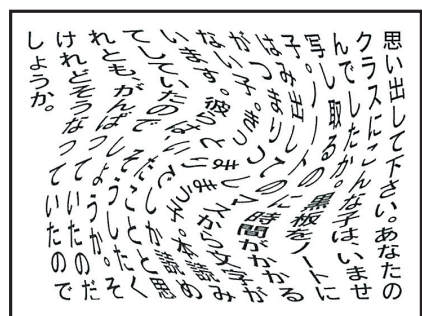 思い出して下さい。あなたの
クラスにこんな子は、いませ
んでしたか。黒板をノートに
写し取るのに時間がかかる
子。ノートのマスから文字が
はみ出してしまう子。本読み
が つまりつまりでしか読め
ない子。きっといたことと思
います。彼らはそうしたく
てしていたのでしょうか。そ
れとも、がんばっていたのだ
けれどそうなっていたので
しょうか。